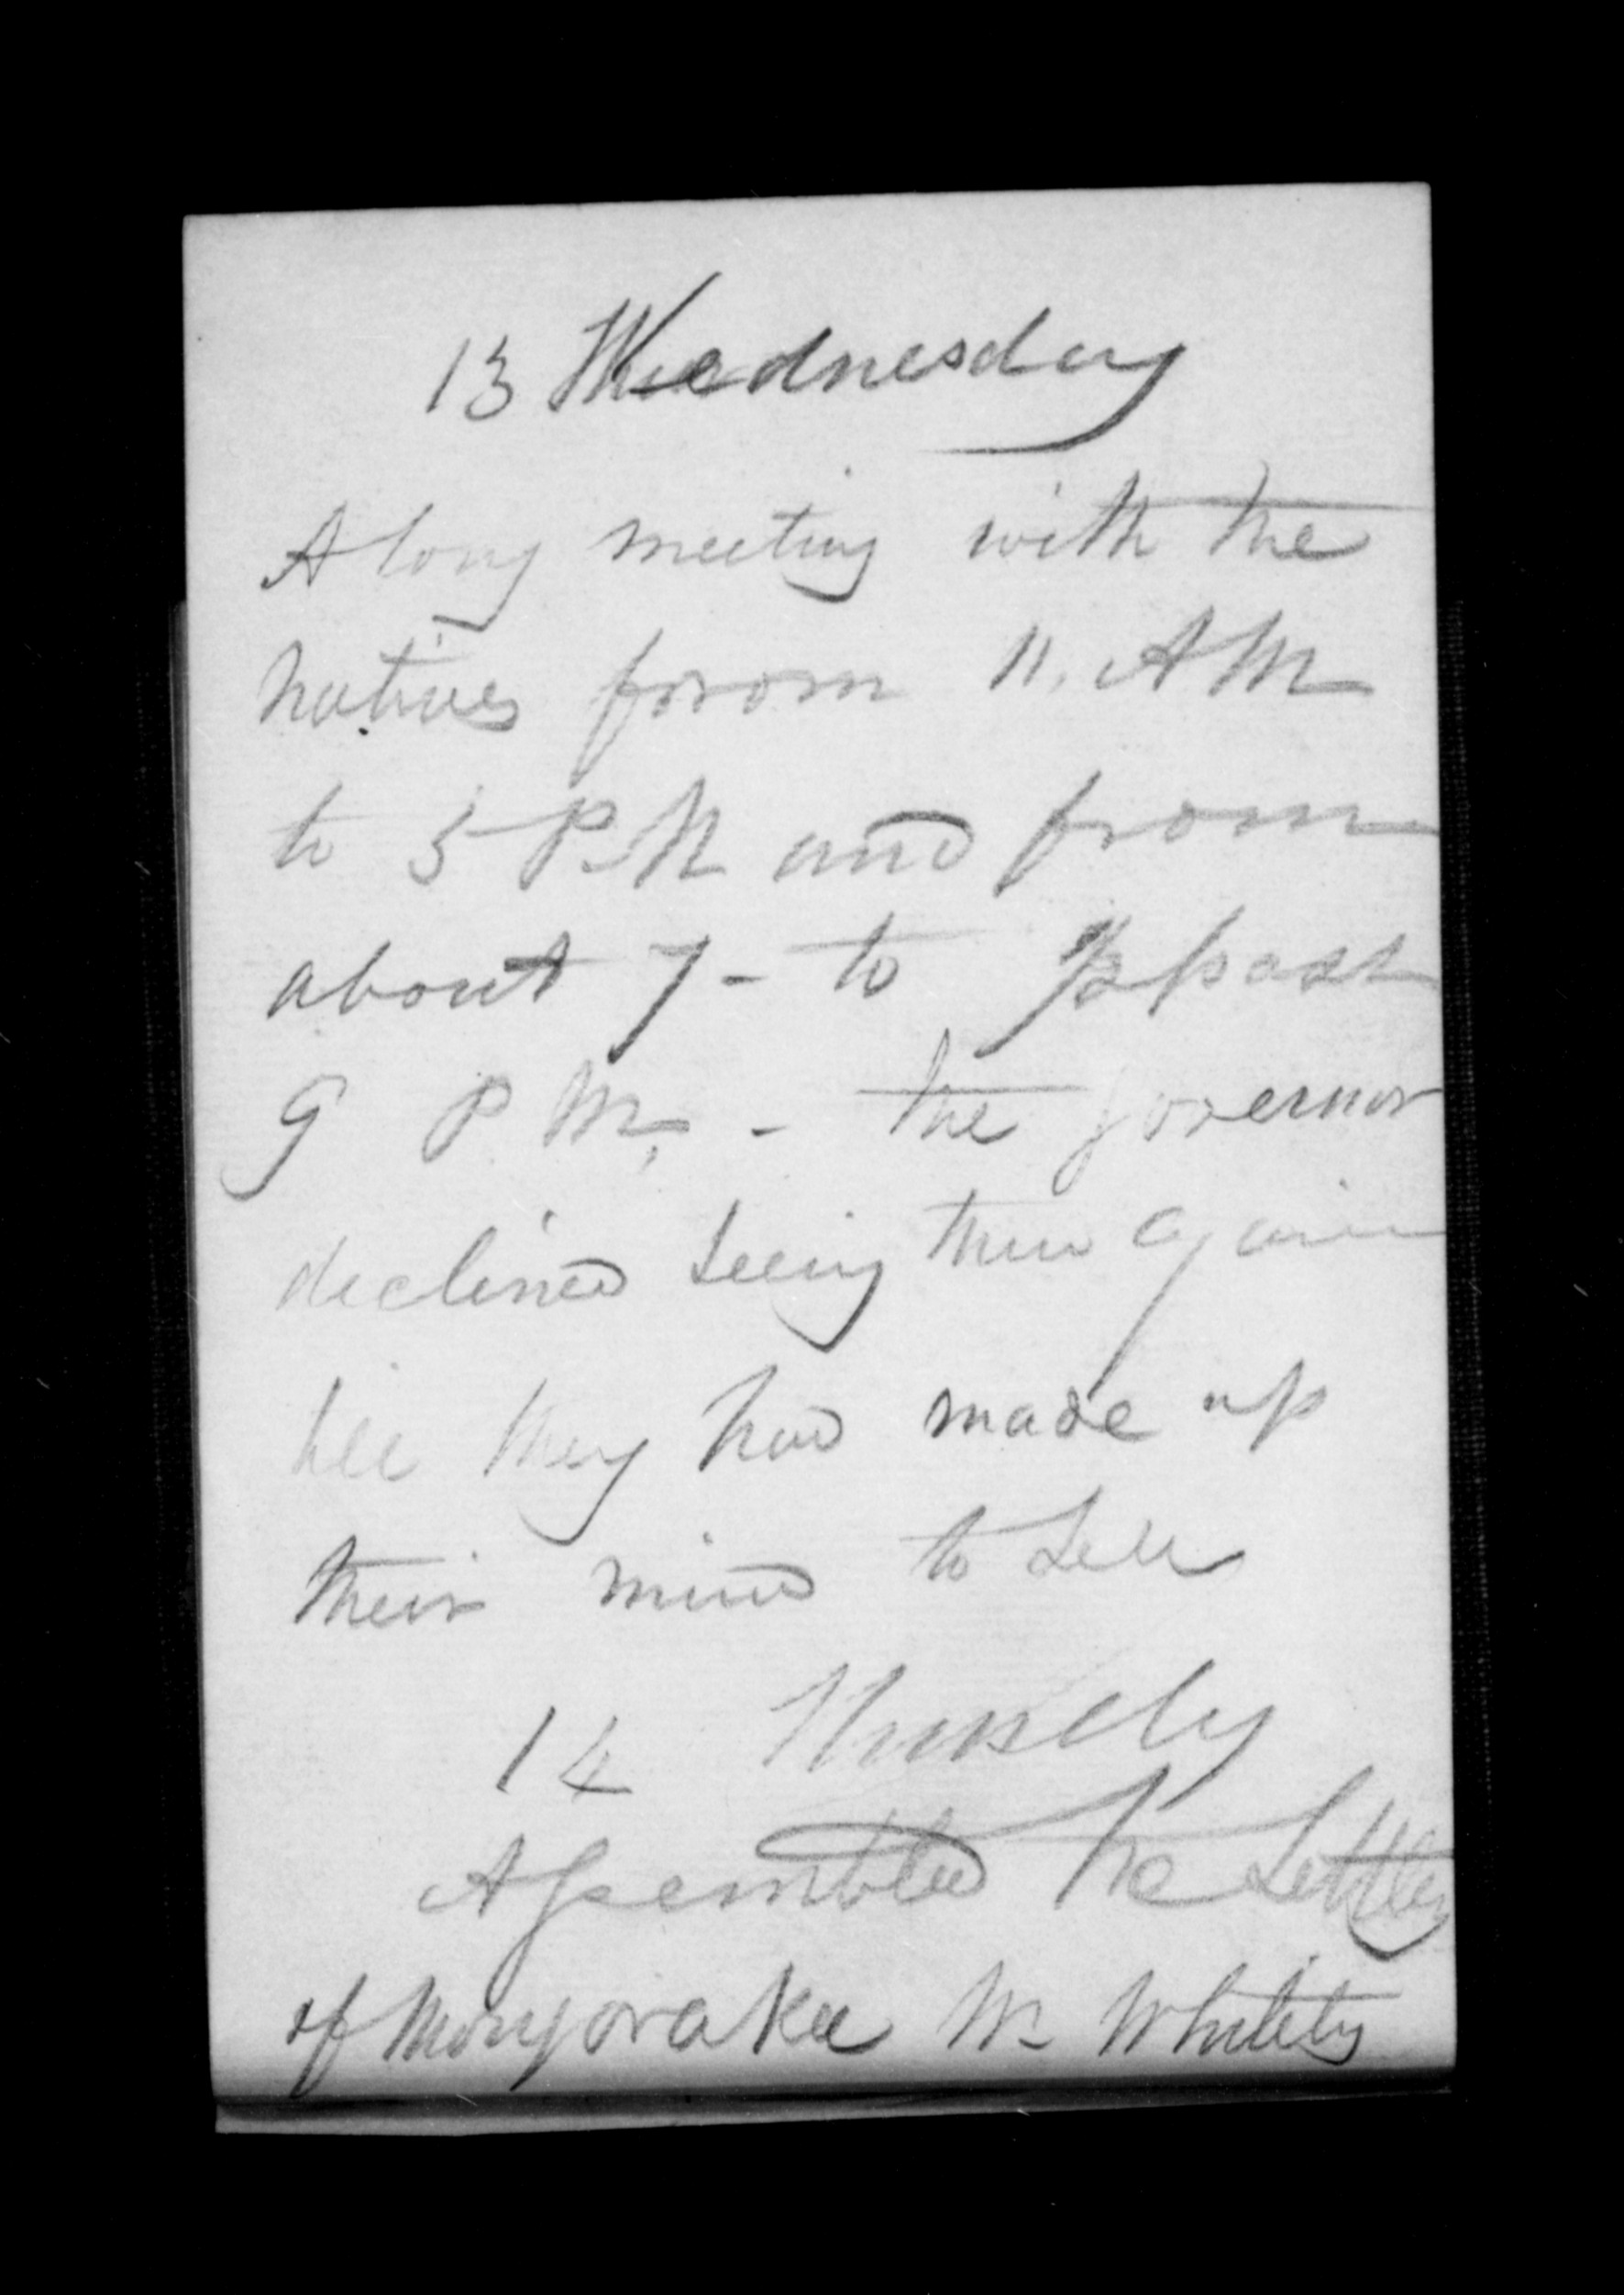 13 Wednesday
A long meeting with the
natives from 11. AM
to 5 PM and from
about 7 - to 1/2 past
9 P.M. - the governor
declined seeing them again
till they had made up
their mind to sell
14 Thursdy
Assembled the Settlers
of Mongorakee Mr Whitely